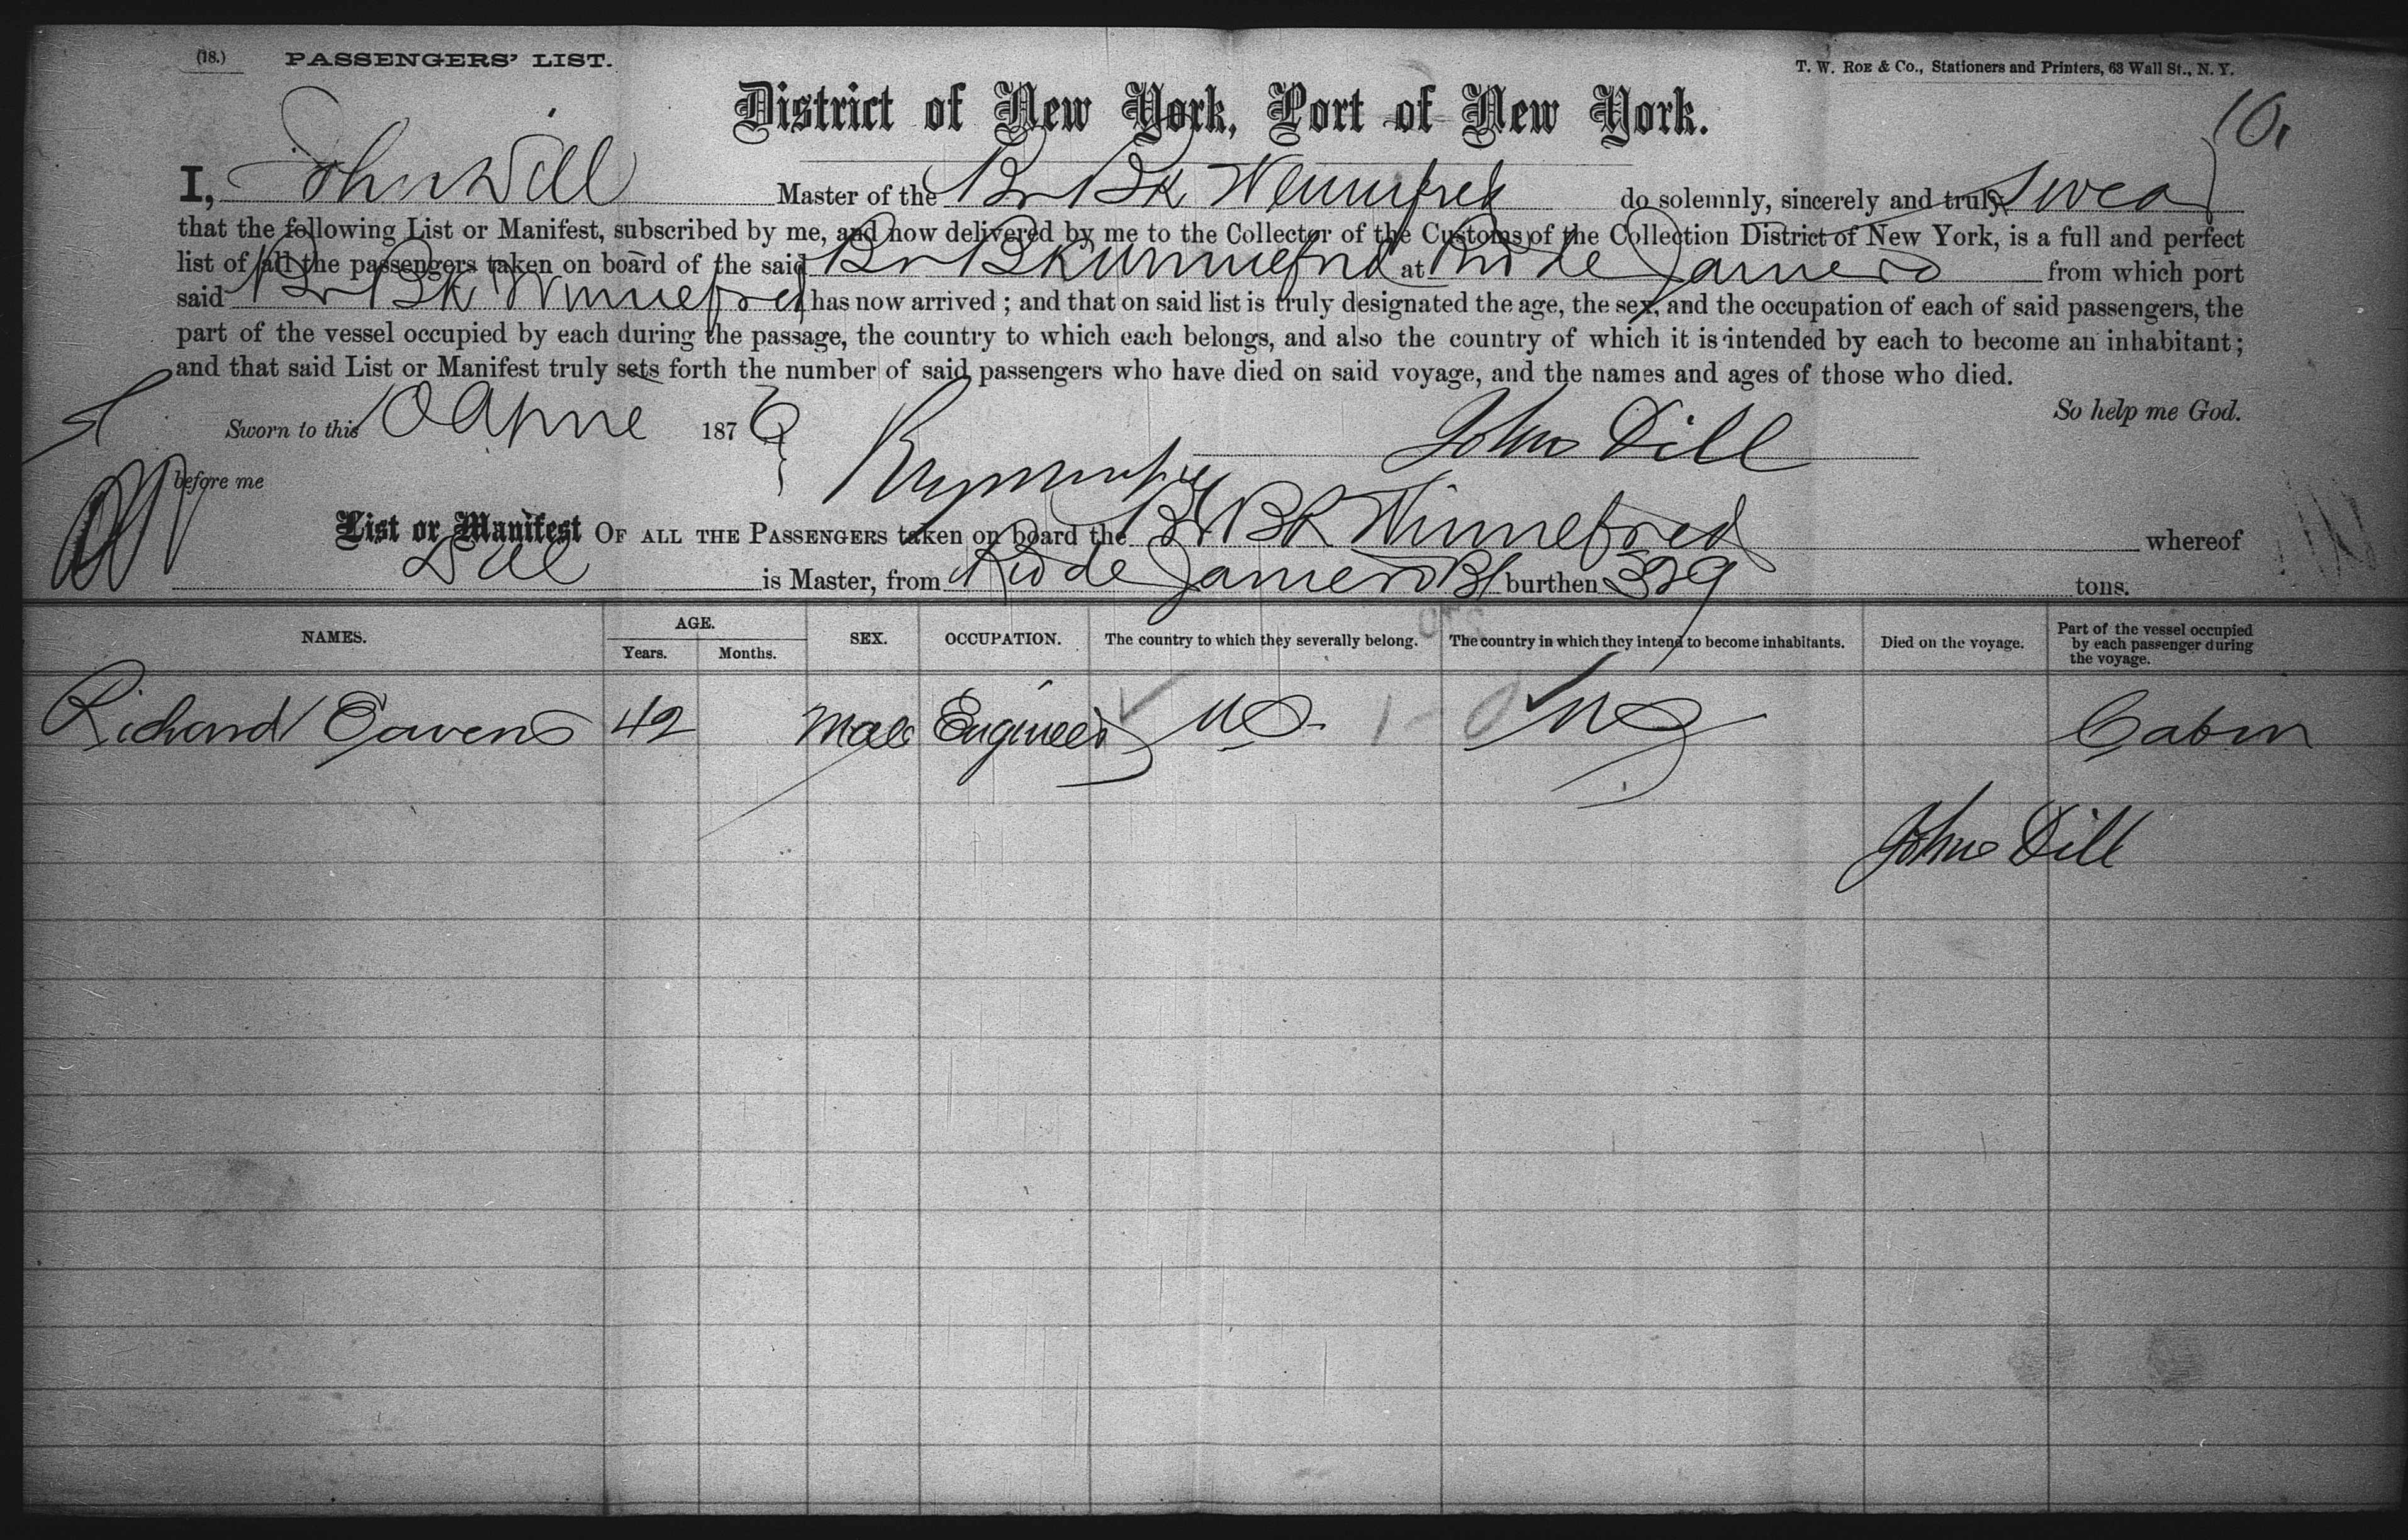 (18.) PASSENGERS' LIST. T. W. ROE & Co., Stationers and Printers, 63 Wall St., N. Y.
District of New York, Port of New York. 10.
I, John Dill Master of the Br Bk Winnefred do solemnly, sincerely and truly swear
that the following List or Manifest, subscribed by me, and now delivered by me to the Collector of the Customs of the Collection District of New York, is a full and perfect
list of all the passengers taken on board of the said Br Bk Winnefred at Rio de Janeiro from which port
said Br Bk Winnefred has now arrived; and that on said list is truly designated the age, the sex, and the occupation of each of said passengers, the
part of the vessel occupied by each during the passage, the country to which each belongs, and also the country of which it is intended by each to become an inhabitant;
and that said List or Manifest truly sets forth the number of said passengers who have died on said voyage, and the names and ages of those who died.
So help me God.
Sworn to this 1876 John Dill
before me
List or Manifest OF ALL THE PASSENGERS taken on board the Br Bk Winnefred whereof
Dill is Master, from Rio de Janeiro burthen 329 tons.
NAMES. AGE. SEX. OCCUPATION. The country to which they severally belong. The country in which they intend to become inhabitants. Died on the voyage. Part of the vessel occupied by each passenger during the voyage.
Years. Months.
Richard Owens 42 Male Engineer US US Cabin
John Dill